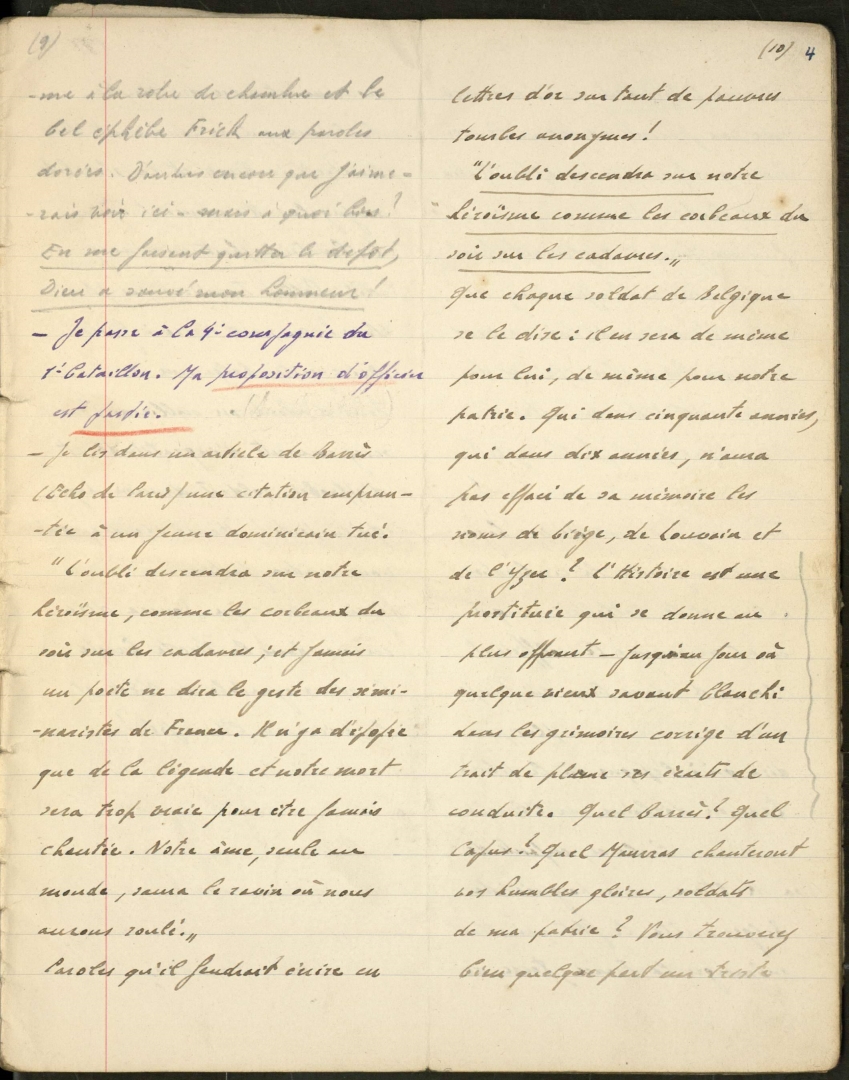 (9)
-me à la robe de chambre et le
bel éphèbe Frick aux paroles
dorées. D'autres encore que j'aime-
-rais voir ici - mais à quoi bon!
En me faisant quitter le dépôt,
Dieu a sauvé mon honneur!
- Je passe à la 9e compagnie du
1er bataillon. Ma proposition d'officier
est partie.
- Je lis dans un article de Barrès
(Echo de Paris) une citation emprun-
-tée à un jeune dominicain tué.
"L'oubli descendra sur notre
héroïsme, comme les corbeaux du
soir sur les cadavres; et jamais
un poète ne dira le geste des sémi-
-naristes de France. Il n'y a d'épopée
que de la légende et notre mort
sera trop vraie pour être jamais
chantée. Notre âme, seule au
monde, saura le ravin où nous
aurons roulé.„
Paroles qu'il faudrait écrire en
(10) 4
lettres d'or sur tant de pauvres
tombes anonymes!
"L'oubli descendra sur notre
héroïsme comme les corbeaux du
soir sur les cadavres.„
Que chaque soldat de Belgique
se le dise: il en sera de même
pour lui, de même pour notre
patrie. Qui dans cinquante années,
qui dans dix années, n'aura
pas effacé de sa mémoire les
noms de Liége, de Louvain et
de l'Yser? L'Histoire est une
prostituée qui se donne au
plus offrant - jusqu'au jour où
quelque vieux savant blanchi
dans les grimoires corrige d'un
trait de plume ses écarts de
conduite. Quel Barrès? Quel
Capus? Quel Maurras chanteront
vos humbles gloires, soldats
de ma patrie? Vous trouverez
bien quelque part un